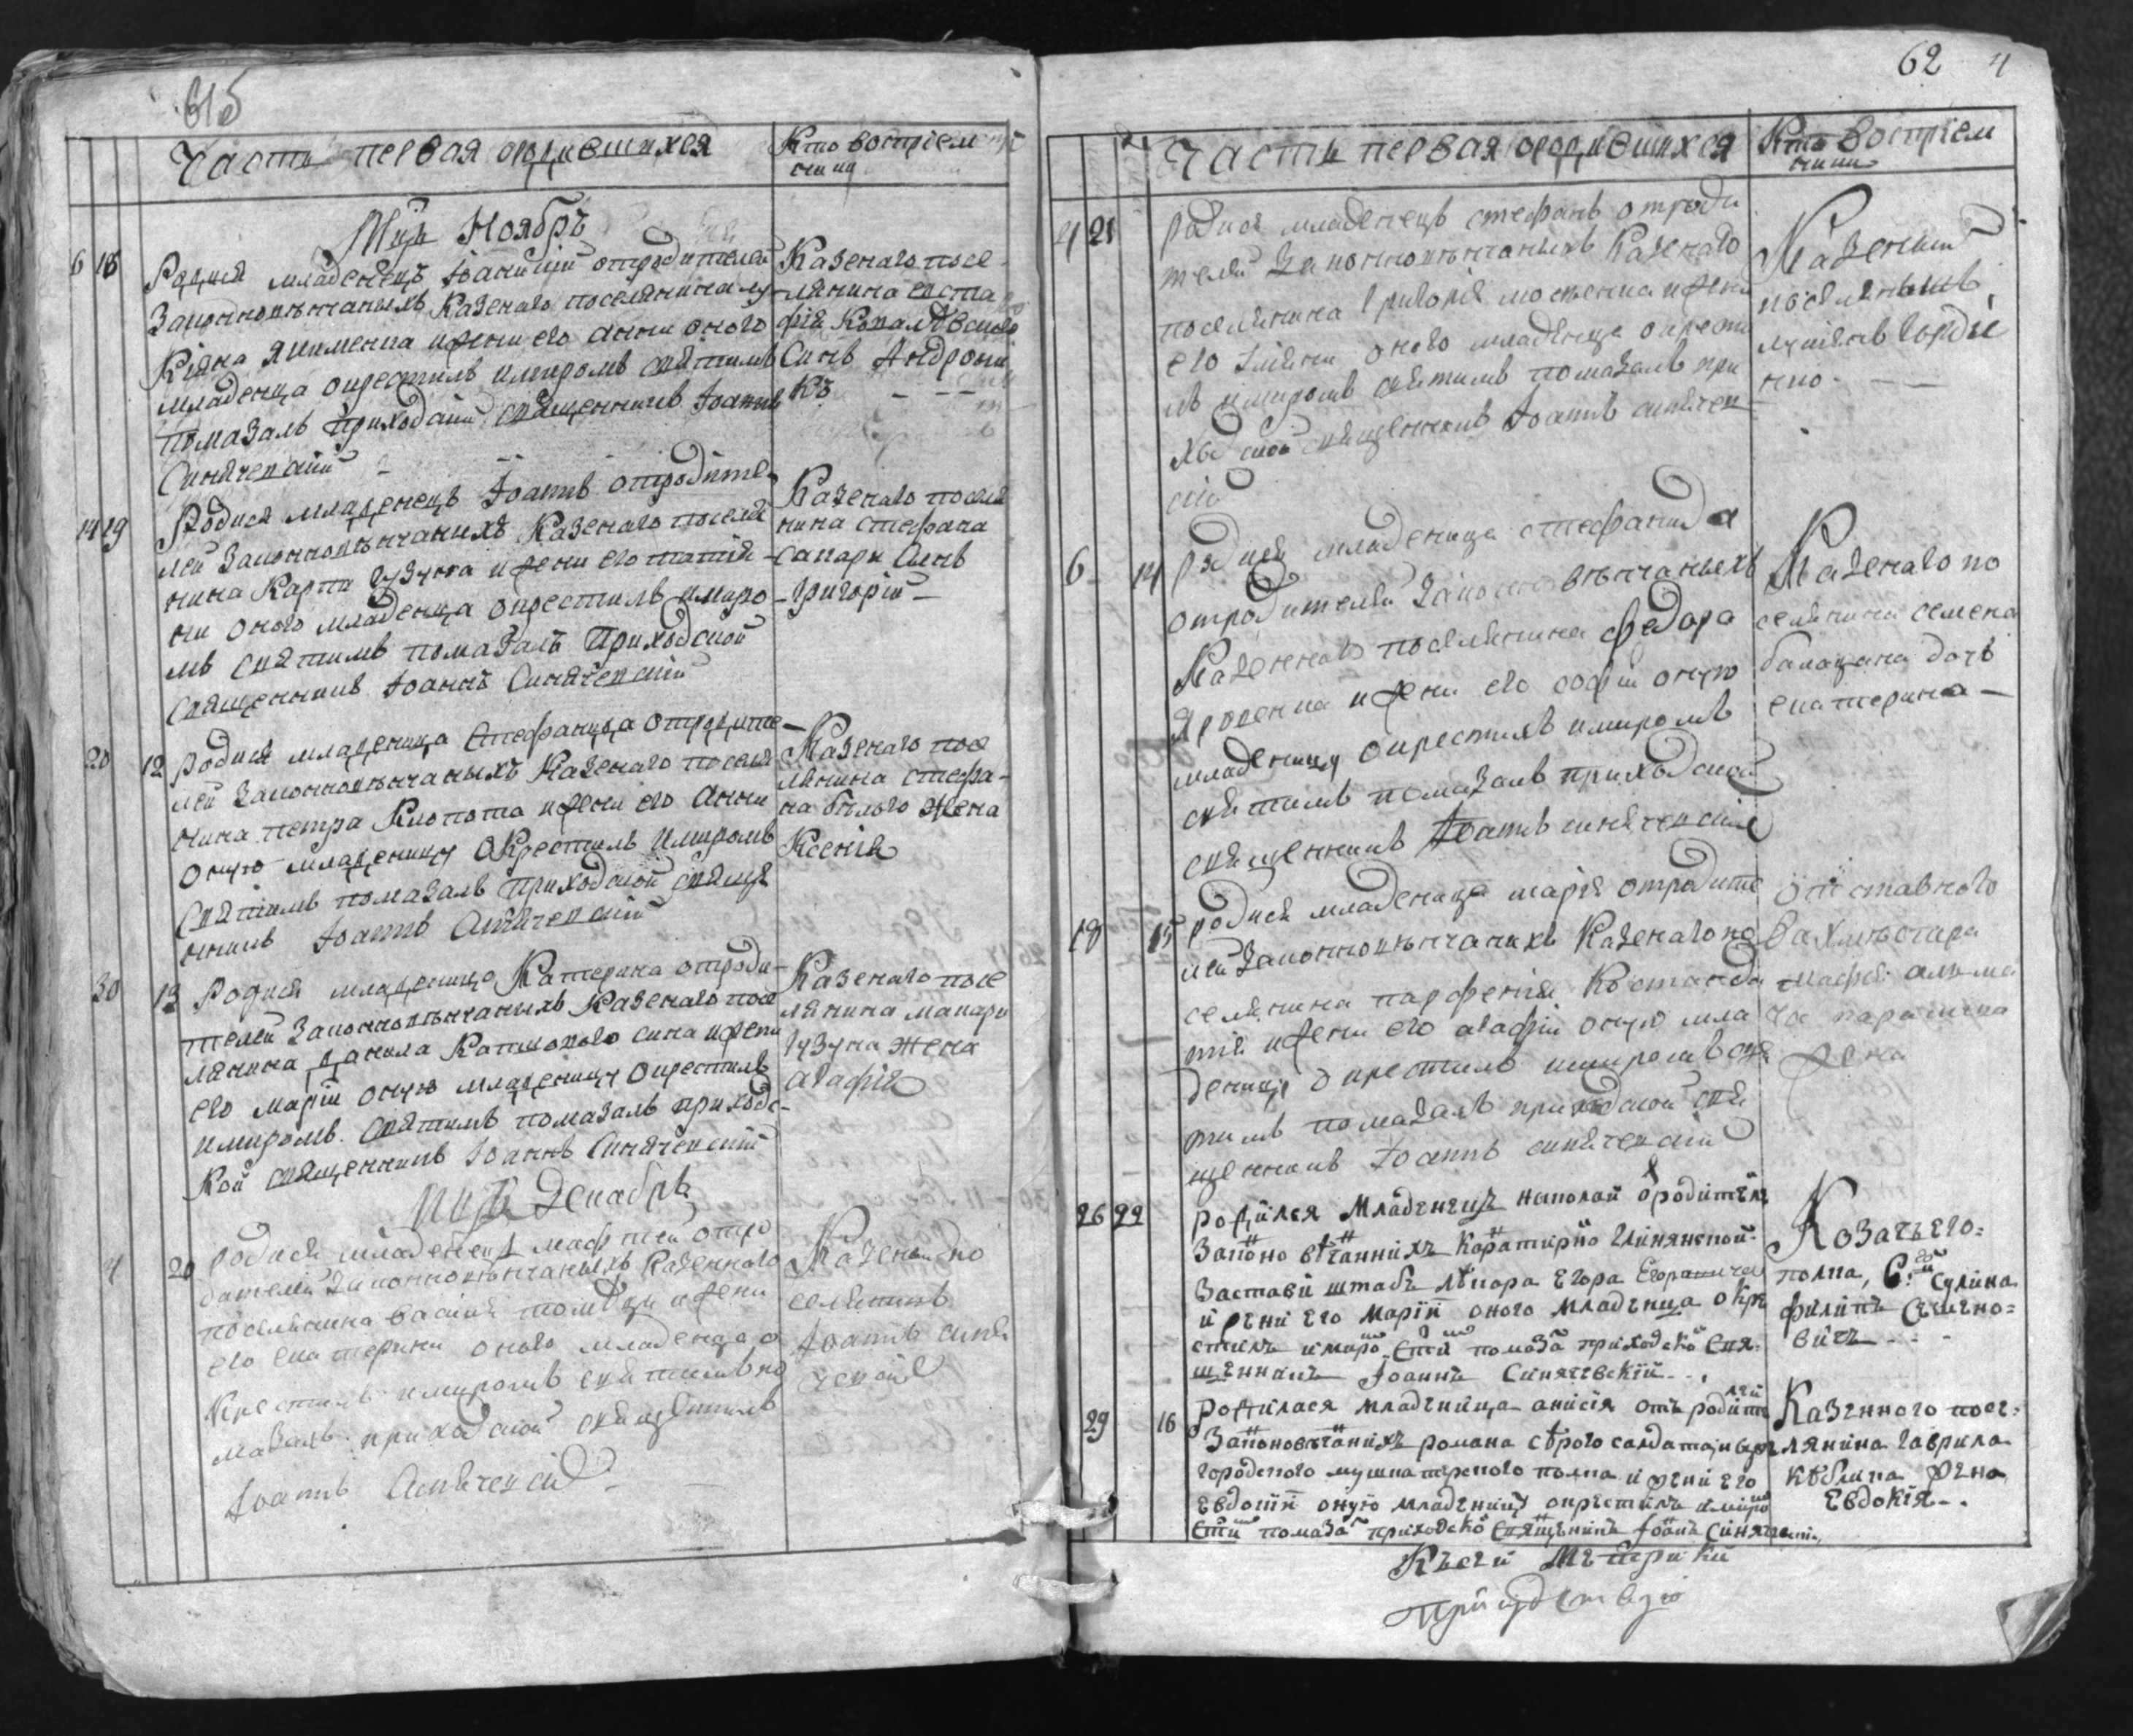 615
Часть первая ородившихся
Кто восприем
ники
Мцъ Ноябръ
6 18 Родися младенецъ Іоаникій отродителей
Законновѣнчаныхъ Казенаго поселянина лу
Кіяна Якименка ижени его анни оного
младенца окрестилъ имиромъ святимъ
помазалъ приходскій священникъ Іоаннъ
Синячевскій
Казенаго посе
лянина евста
фія Ковалевского
Синъ Андрони
Къ
14 19 Родися младенецъ Іоаннъ отродите
лей Законновѣнчанихъ Казенаго поселя
нина Карпа Гузуна ижени его татія
ни оного младенца окрестилъ имиро
мъ святимъ помазалъ Приходской
священникъ Іоаннъ Синячевскій
Казенаго поселя
нина стефана
сапари Синъ
Григорій
20 12 Родися младеница Стефанида отродите
лей Законновѣнчаныхъ Казенаго поселя
нина петра Клопота ижени его Анни
оную младеницу окрестилъ имиромъ
святимъ помазалъ приходской свяще
нникъ Іоаннъ Синячевскій
Казенаго посе
лянина стефа
на бѣлого Жена
Ксенія
30 13 Родися младеница Катерина отроди
телей Законновѣнчаныхъ Казенаго посе
лянина данила Катшового сина ижени
его маріи оную младеницу окрестилъ
имиромъ святимъ помазалъ приходс
кой священникъ Іоаннъ Синячевскій
Казенаго посе
лянина макари
Гузуна Жена
агафія
Мцъ Декабръ
4 20 родися младенецъ матфей отро
дителей Законновѣнчаныхъ Казенного
поселянина василія ижени
его екатерини оного младенца о
крестилъ имиромъ святимъ по
мазалъ приходской священникъ
Іоаннъ Синячевскій
Казений по
селянинъ
Іоаннъ синя
чевскій
62 4
Часть первая ородившихся
Кто восприем
ники
4 21 родися младенецъ стефанъ отроди
телей Законновѣнчаныхъ Казенаго
поселянина Григорія ижени
его оного младенца окрести
лъ имиромъ святимъ помазалъ при
ходской священникъ Іоаннъ синячев
скій
Казений
поселянинъ
лукіянъ Гордіе
нко
6 14 родися младеница стефанида
отродителей Законновѣнчаныхъ
Казенного поселянина федора
Яровенка ижени его софіи оную
младеницу окрестилъ имиромъ
святимъ помазалъ приходской
священникъ Іоаннъ синячевскій
Казенаго по
селянина семена
балацана дочь
екатерина
18 15 родися младеница марія отродите
лей Законновѣнчанихъ Казенаго по
селянина парфенія
ижени его агафіи оную мла
деницу окрестилъ имиромъ свя
тимъ помазалъ приходской свя
щенникъ Іоаннъ синячевскій
отставного
вахмистара
жена
26 22 родился Младенецъ николай ородителе
Штабъ лѣкара Егора Егоровича
и жени Его маріи оного младенца окре
стилъ имиро помаза приходско свя
щенникъ Іоаннъ Синячевскій
Козачъего
полка, сулина
филипъ
вичъ
29 16 родилася младеница анисія отъ родите
лей
Законовѣчанихъ романа сѣрого салдата
городского мушкатерского полка и жени его
Евдокіи оную младеницу окрестилъ имиро
помаза приходско священикъ Іоанъ Синячевскі
Казенного посе
лянина гаврила
жена
Евдокія
Къ сей Метрики